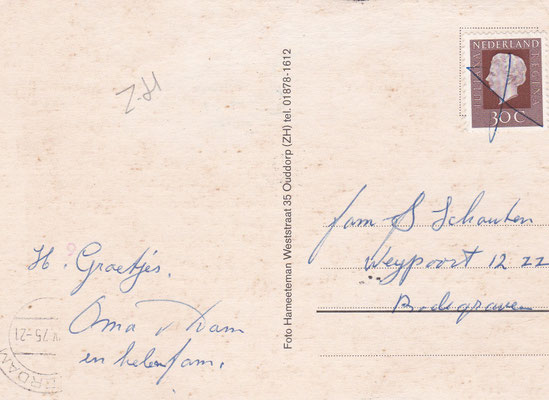 H. Groetjes.
Oma v Dam
en helen fam.
Foto Hameeteman Weststraat 35 Ouddorp (ZH) tel. 01878-1612
NEDERLAND
JULIANA REGINA
30 C
fam S Schouten
Weypoort 12 ZZ
Bodegraven
75-21
RDAM